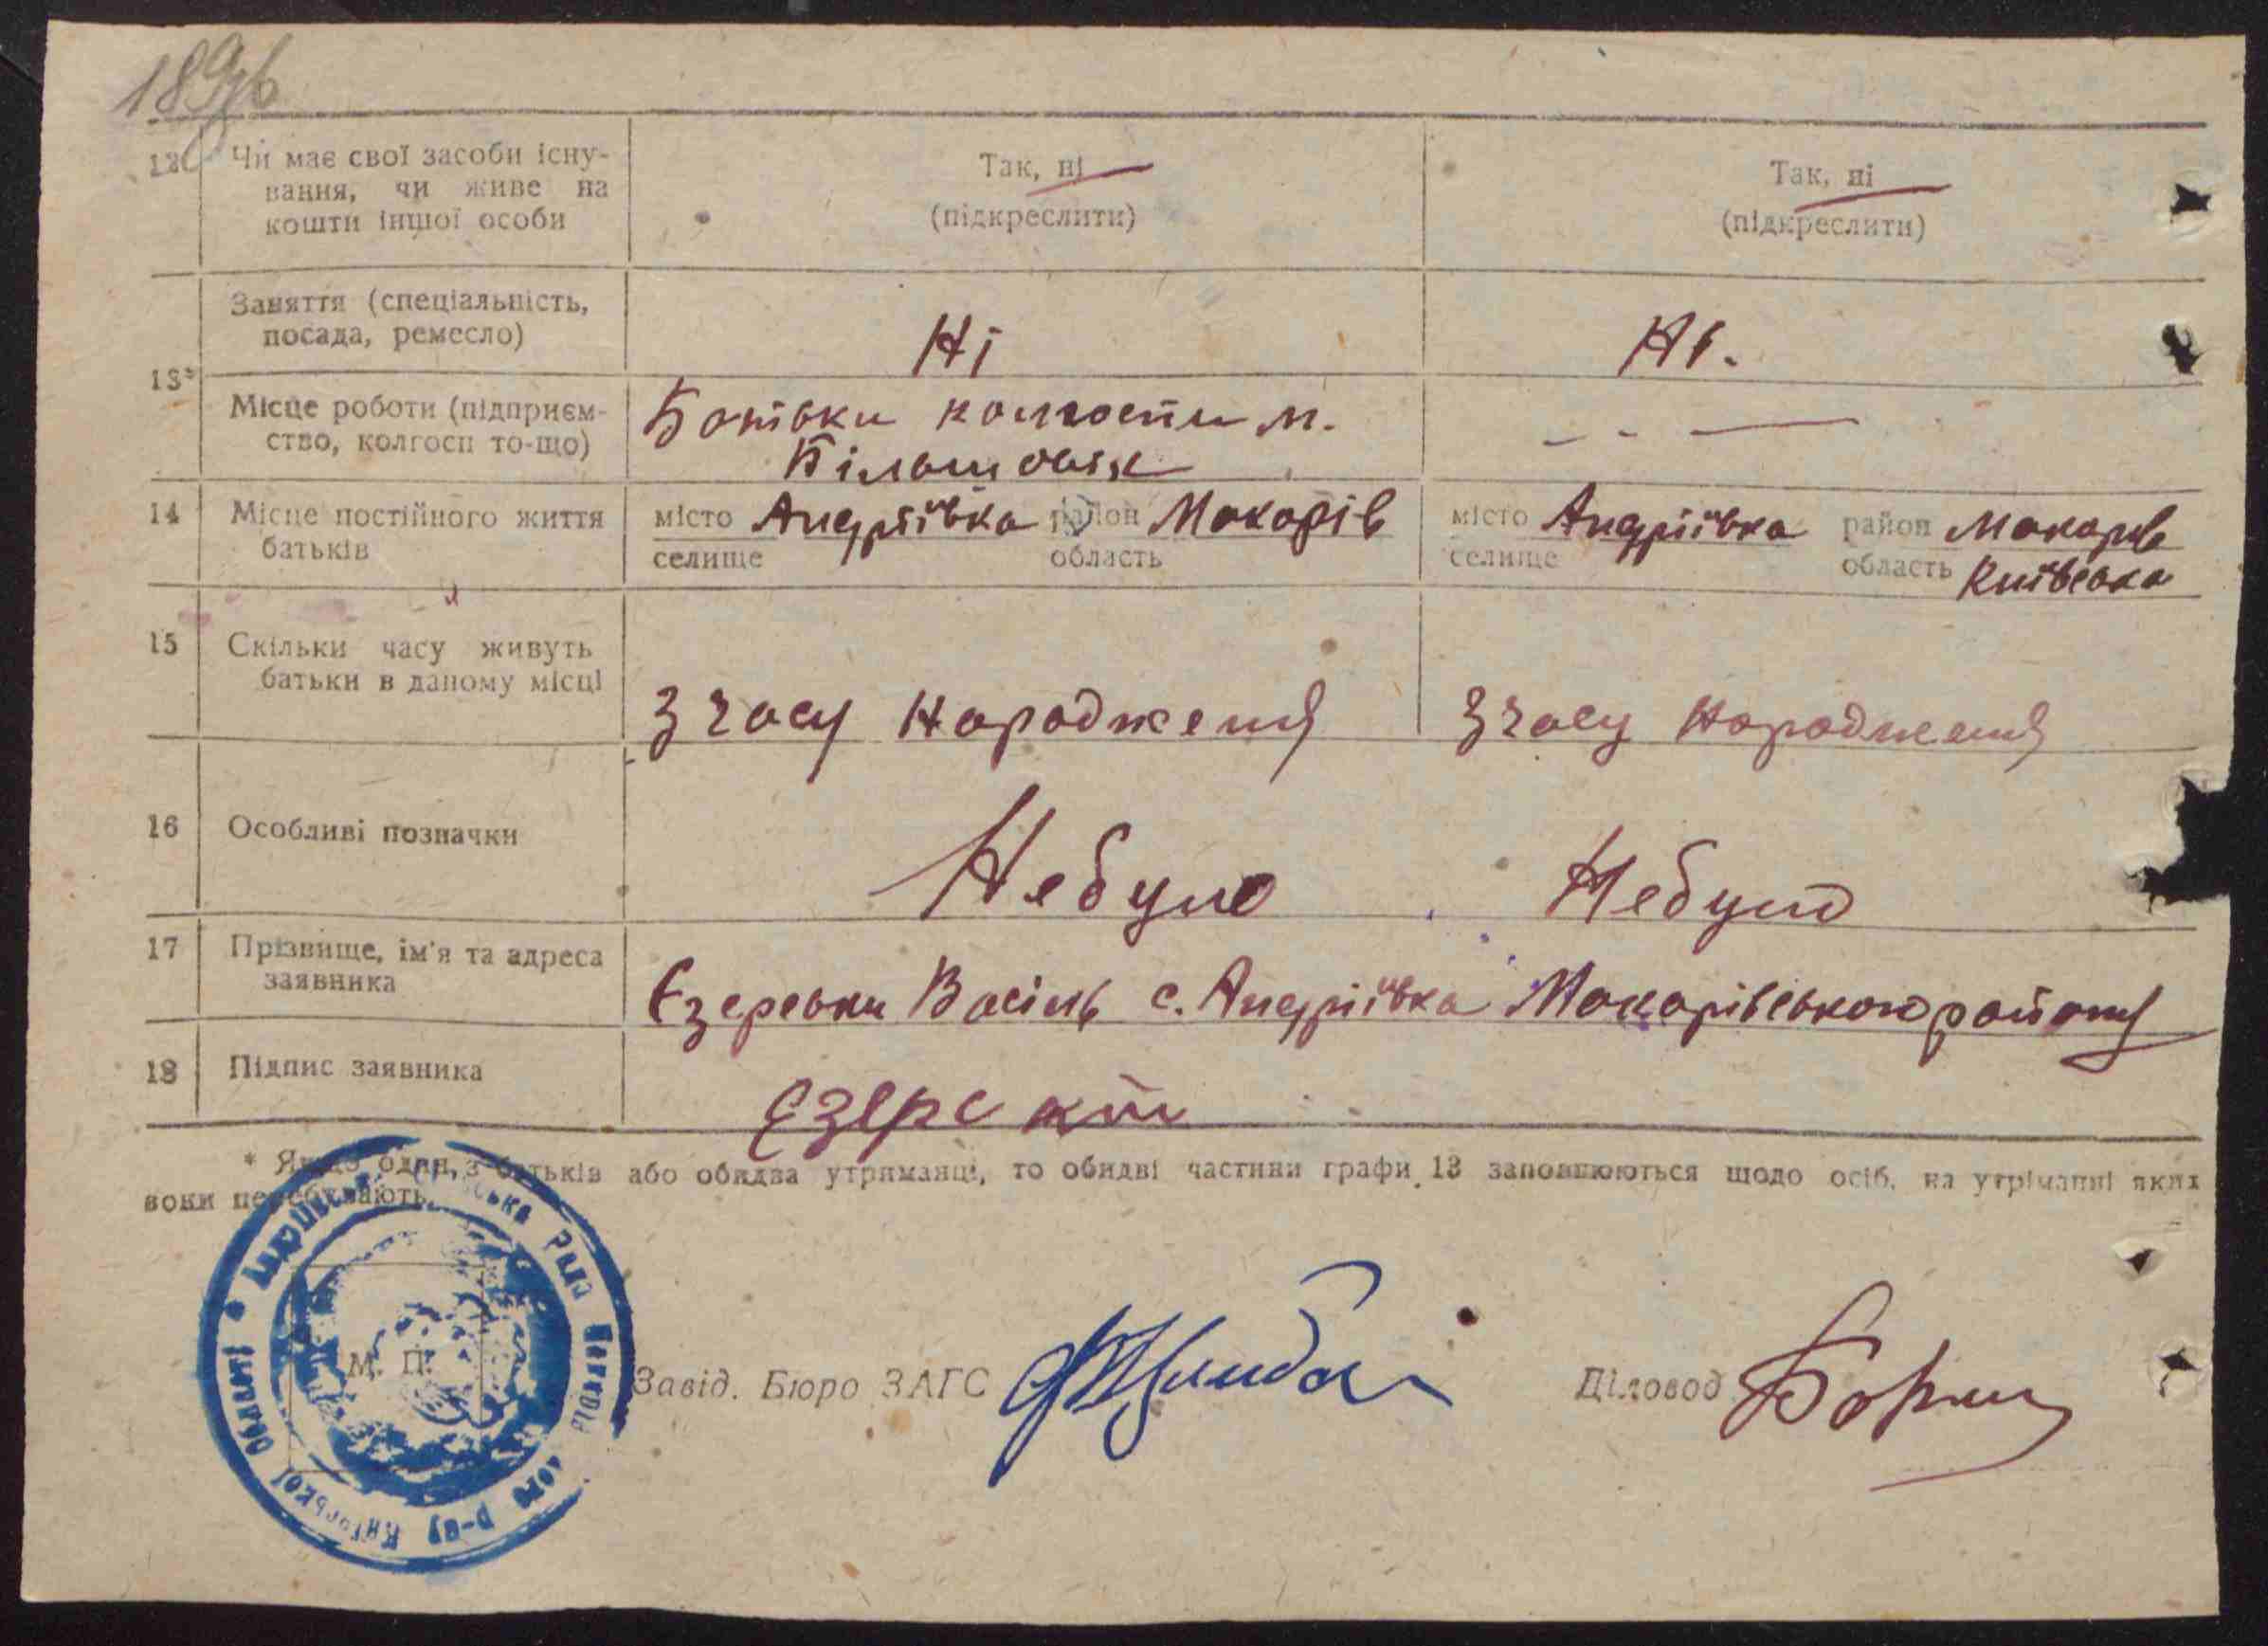 189зв
12 Чи має свої засоби існу-
вання, чи живе на
кошти іншої особи
Так, ні
(підкреслити)
Так, ні
(підкреслити)
13*
Заняття (спеціальність,
посада, ремесло)
Ні
Ні.
Місце роботи (підприєм-
ство, колгосп то-що)
Батьки колгоспи м.
14 Місце постійного життя
батьків
місто Андріївка район Макарів
селище область
місто Андріївка район Макарів
селище область Київська
15 Скільки часу живуть
батьки в даному місці
З часу народженя
З часу народженя
16 Особливі позначки
Небуло
Небуло
17 Прізвище, ім'я та адреса
заявника
Єзерськи Васіль с. Андріївка Макарівського району
18 Підпис заявника
Єзерскпи
* Якщо один з батьків або обидва утриманці, то обидві частини графи 13 заповнюються щодо осіб, на утріманні яких
вони перебувають.
Андріївська Сільська Рада Макарівського р-ну Київської Області
М. П.
Завід. Бюро ЗАГС
Діловод